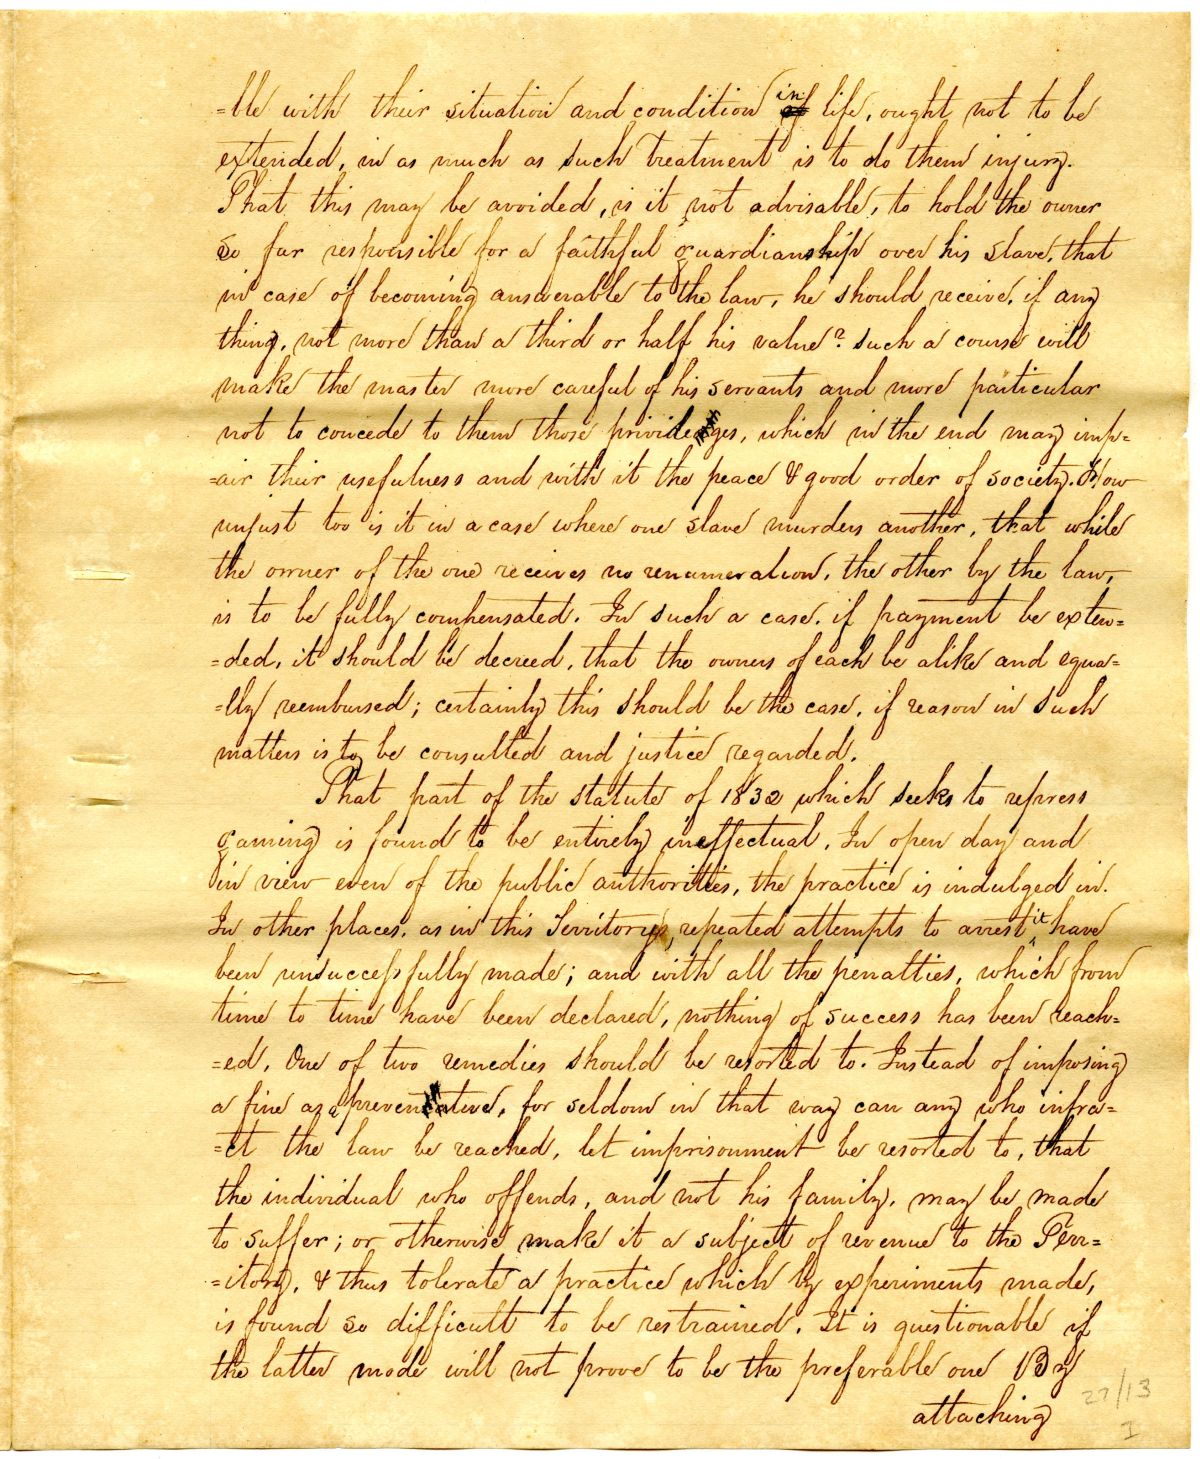 =ble with their situation and condition in of life, ought not to be
extended, in as much as such treatment is to do them injury.
That this may be avoided, is it not advisable, to hold the owner
so far responsible for a faithful guardianship over his slave, that
in case of becoming answerable to the law, he should receive, if any
thing, not more than a third or half his value? such a course will
make the master more careful of his servants and more particular
not to concede to them those privideges, which in the end may imp=
=air their usefulness and with it the peace & good order of society. How
unjust too is it in a case where one slave murders another, that while
the owner of the one receives no renumeration, the other by the law,
is to be fully compensated. In such a case, if payment be exten=
=ded, it should be decreed, that the owners of each be alike and equa=
=lly reembursed; certainly this should be the case, if reason in such
matters is to be consulted and justice regarded.
That part of the statute of 1832 which seeks to repress
gaming is found to be entirely ineffectual. In open day and
in view even of the public authorities, the practice is indulged in.
In other places, as in this Territory, repeated attempts to arrest it have
been unsuccessfully made; and with all the penalties, which from
time to time have been declared, nothing of success has been reach=
=ed. One of two remedies should be resorted to. Instead of imposing
a fine as a preventative, for seldom in that way can any who infra=
=ct the law be reached, let imprisonment be resorted to, that
the individual who offends, and not his family, may be made
to suffer; or otherwise make it a subject of revenue to the Terr=
=itory, & thus tolerate a practice which by experiments made,
is found so difficult to be restrained. It is questionable if
the latter mode will not prove to be the preferable one By
attaching
27/13
I